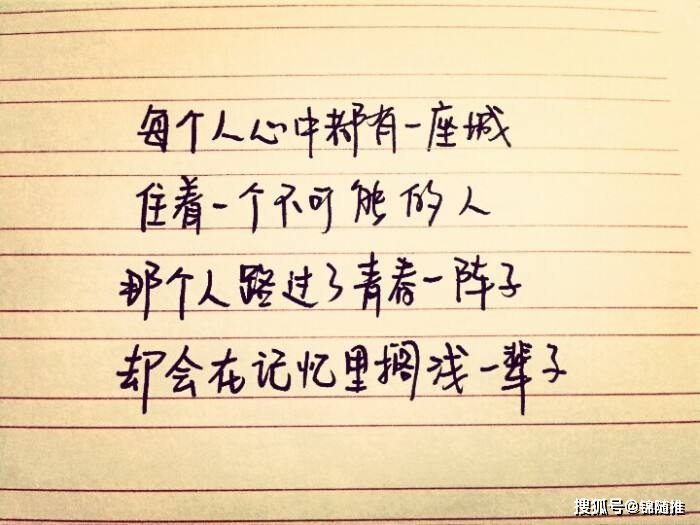 每个人心中都有一座城
住着一个不可能的人
那个人路过了青春一阵子
却会在记忆里搁浅一辈子
搜狐号@锦随推